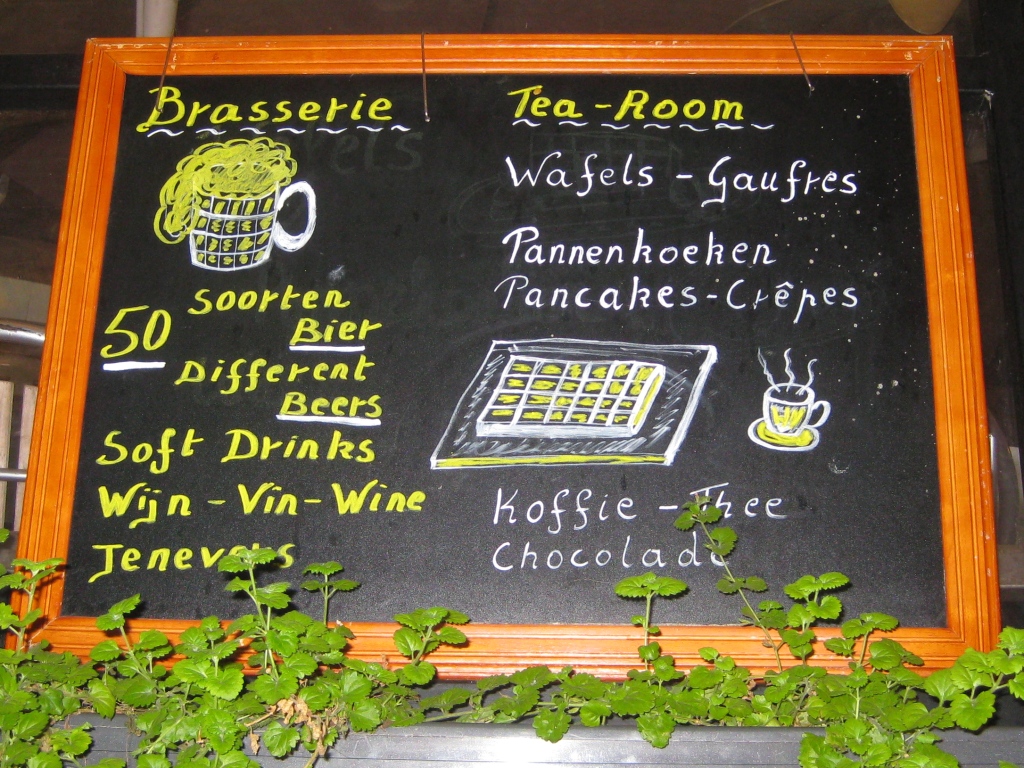 Brasserie
50
Soorten
Bier
Different
Beers
Soft Drinks
Wijn - Vin - Wine
Jenevers
Tea-Room
Wafels - Gaufres
Pannenkoeken
Pancakes-Crêpes
Koffie - Thee
Chocolade